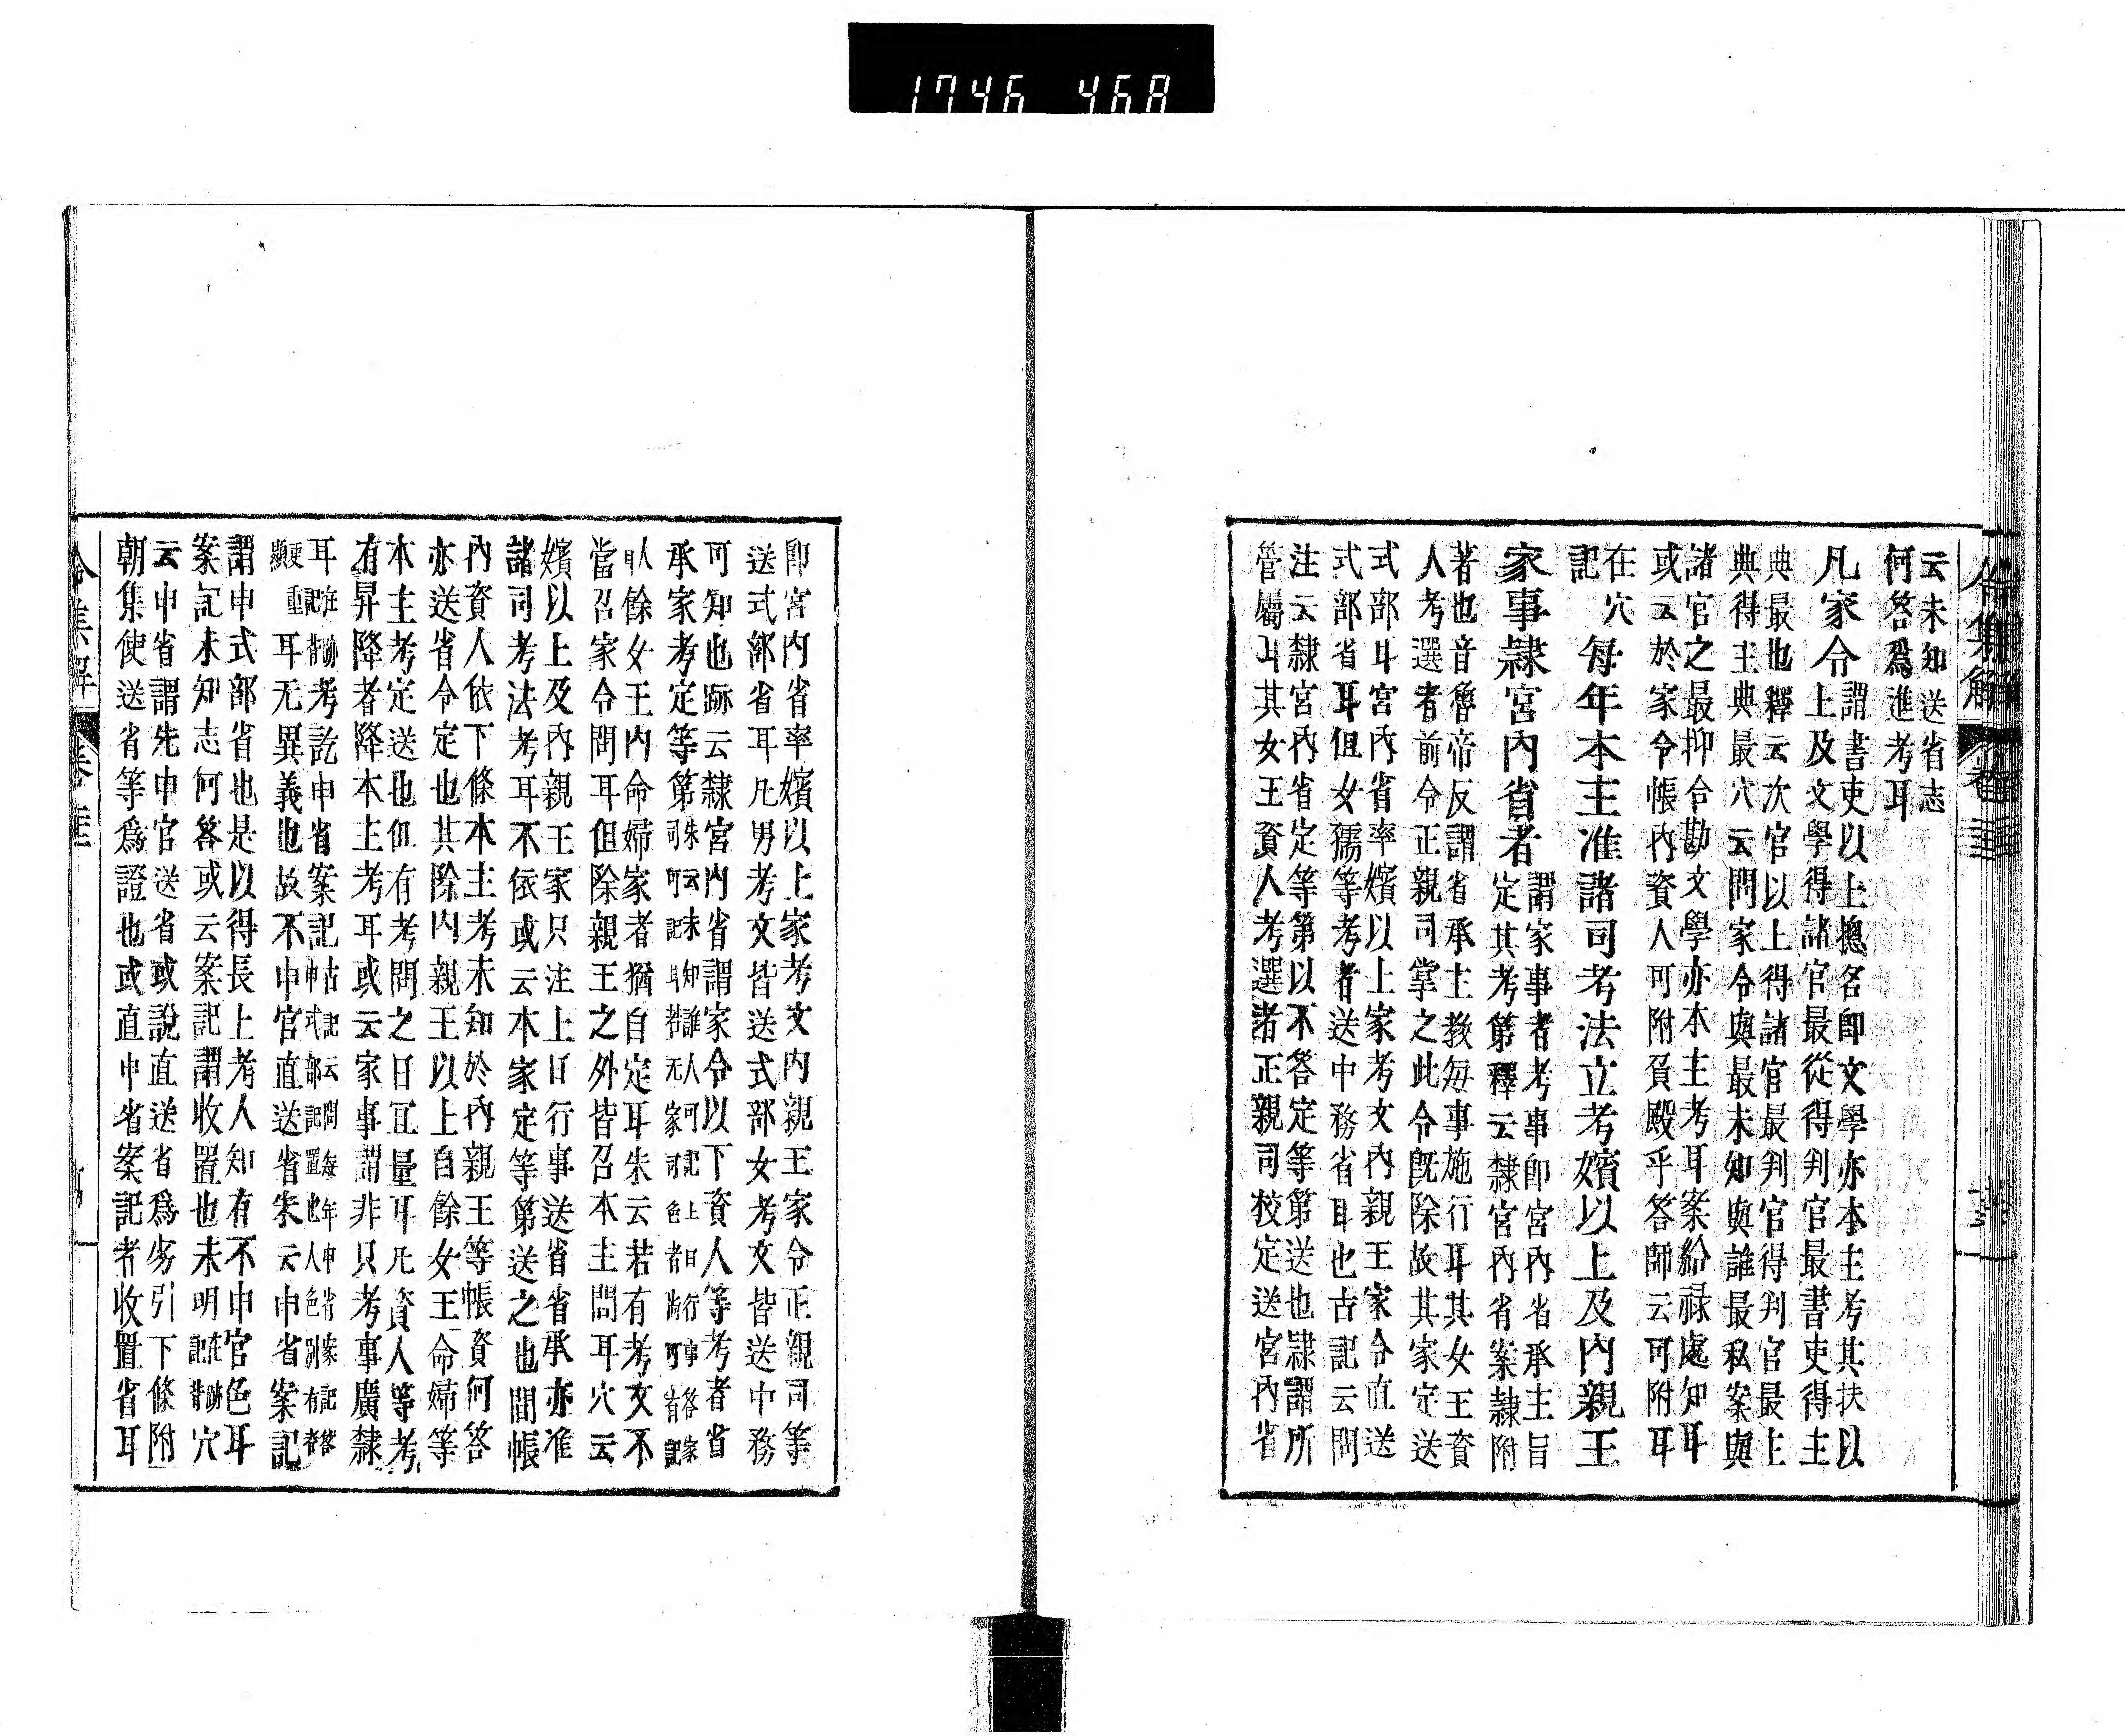 1746 468
云未知送省志
何答爲進考耳
凡家令
謂書吏以上揔名卽文學亦本主考其扶以
上及文學得諸官最從得判官最書吏得主
典最也釋云次官以上得諸官最判官得判官最主
典得主典最穴云問家令與最未知與誰最私案與
諸官之最抑合勘文學亦本主考耳案給祿處知耳
或云於家令帳內資人可附負殿乎答師云可附耳
在穴
記
每年本主准諸司考法立考嬪以上及內親王
家事隷宮內省者
謂家事者考事卽宮內省承主旨
定其考第釋云隷宮內省案隷附
著也音魯帝反謂省承主敎每事施行耳其女王資
人考選者前令正親司掌之此令旣除故其家定送
式部耳宮內省率嬪以上家考文內親王家令直送
式部省耳但女孺等考者送中務省耳也古記云問
注云隷宮內省定等第以不答定等第送也隷謂所
管屬耳其女王資人考選者正親司校定送宮內省
令集解 卷二十二
卽宮內省率嬪以上家考文內親王家令正親司等
送式部省耳凡男考文皆送式部女考文皆送中務
可知也跡云隷宮內省謂家令以下資人等考者省
承家考定等第
朱云未知誰人可記上日行事答家
司可記耳若无家司色者尚可省記
臥餘女王內命婦家者猶自定耳朱云若有考文不
當召家令問耳但除親王之外皆召本主問耳穴云
嬪以上及內親王家只注上日行事送省省承亦准
諸司考法考耳不依或云本家定等第送之也問帳
內資人依下條本主考未知於內親王等帳資何答
亦送省令定也其除內親王以上自餘女王命婦等
本主考定送也但有考問之日冝量耳凡資人等考
有昇降者降本主考耳或云家事謂非只考事廣隷
耳
在跡
記背
考訖申省案記
古記云問每年申省案記答
申式部記置也人色別有者
更重
顯
耳无異義也故不申官直送省朱云申省案記
謂申式部省也是以得長上考人知有不申官色耳
案記未知志何答或云案記謂收置也未明
在跡
記背
穴
云申省謂先申官送省或說直送省爲劣引下條附
朝集使送省等爲證也或直申省案記者收置省耳
令集解 卷二十二